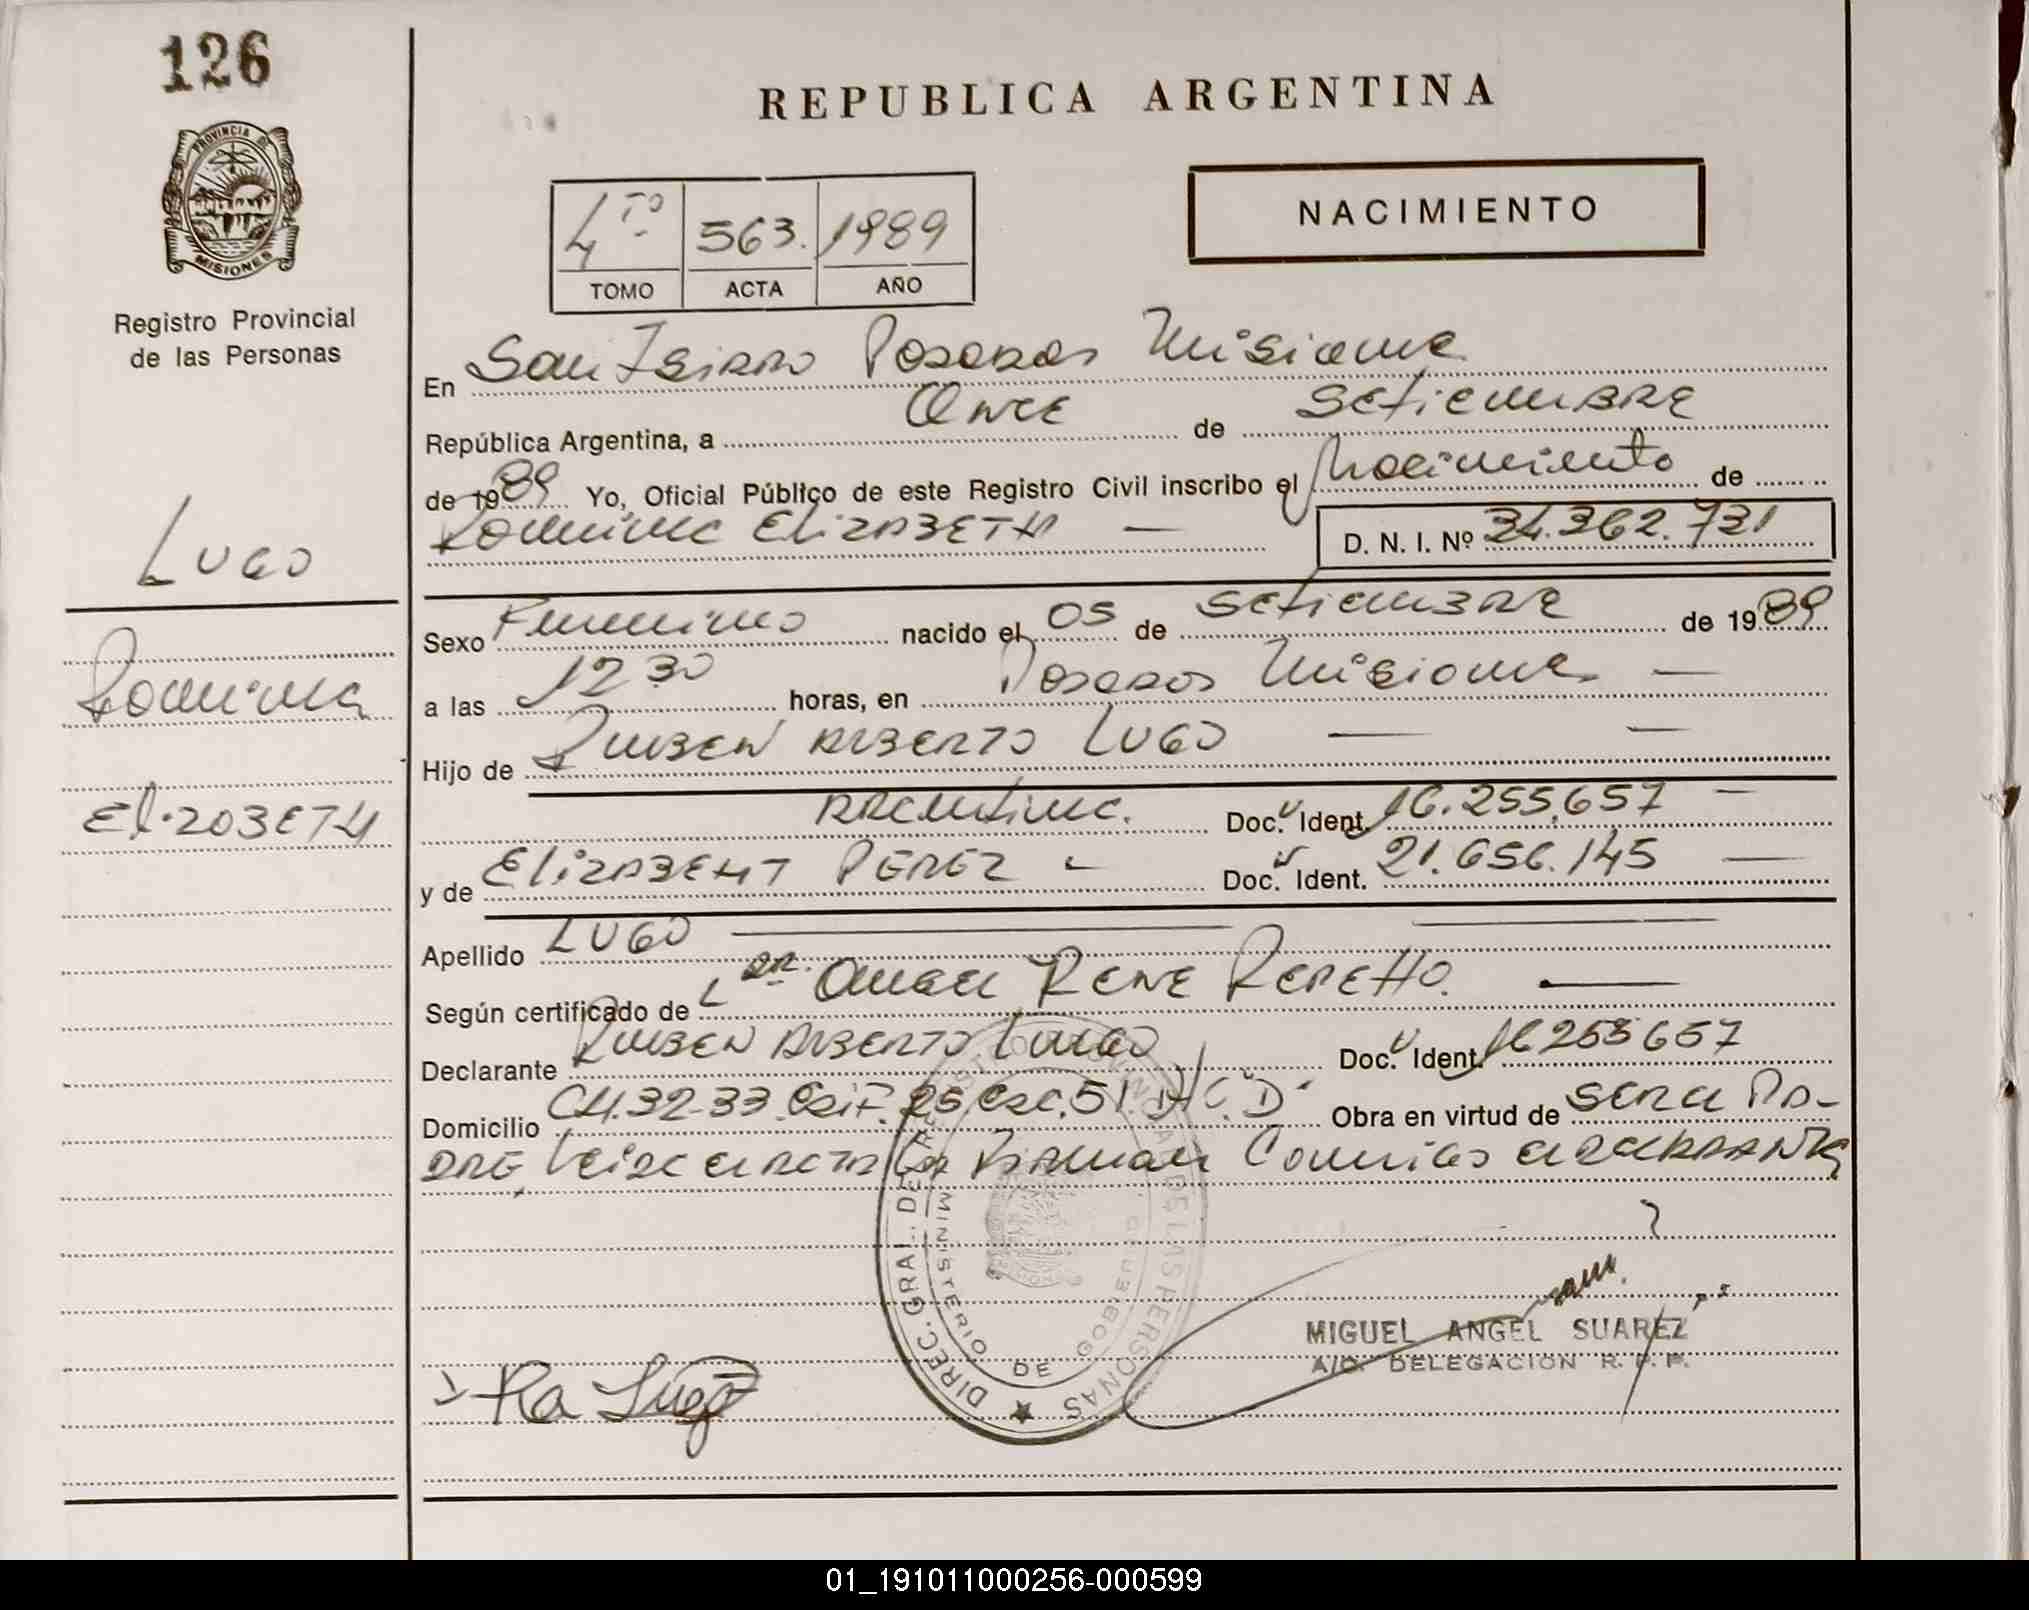 126
REPUBLICA ARGENTINA
PROVINCIA DE
MISIONES
Registro Provincial
de las Personas
4TO 563. 1989
TOMO ACTA AÑO
NACIMIENTO
En San Isidro Posadas Misiones
República Argentina, a Once de Setiembre
de 1989 Yo, Oficial Público de este Registro Civil inscribo el Nacimiento de
Romina Elizabeth — D. N. I. Nº 34.362.731
Lugo
Romina
Elizabeth
Sexo Femenino nacido el 05 de Setiembre de 1989
a las 12 30 horas, en Posadas Misiones —
Hijo de Ruben Alberto Lugo — —
Argentina. Doc. Ident. 16.255.657 —
y de Elizabeht Perez - Doc. Ident. 21.656.145 —
Apellido Lugo
Según certificado de Dr. Rene Repetto. —
Declarante Ruben Alberto Lugo Doc. Ident. 16255657
Domicilio CH.32-33 Edif. 25 Esc. 51 Obra en virtud de ser el Pa-
dre, Leida el acta la Firman Conmigo
DIREC. GRAL. DEL REGISTRO PROVINCIAL DE LAS PERSONAS
MINISTERIO DE GOBIERNO
MIGUEL ANGEL SUAREZ
A/C. DELEGACION R. P. P.
Ra Lugo
01_191011000256-000599